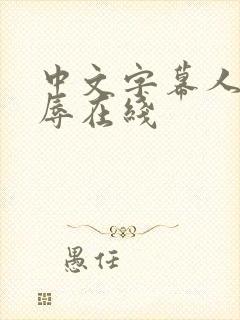 中文字幕人
辱在线
愚任